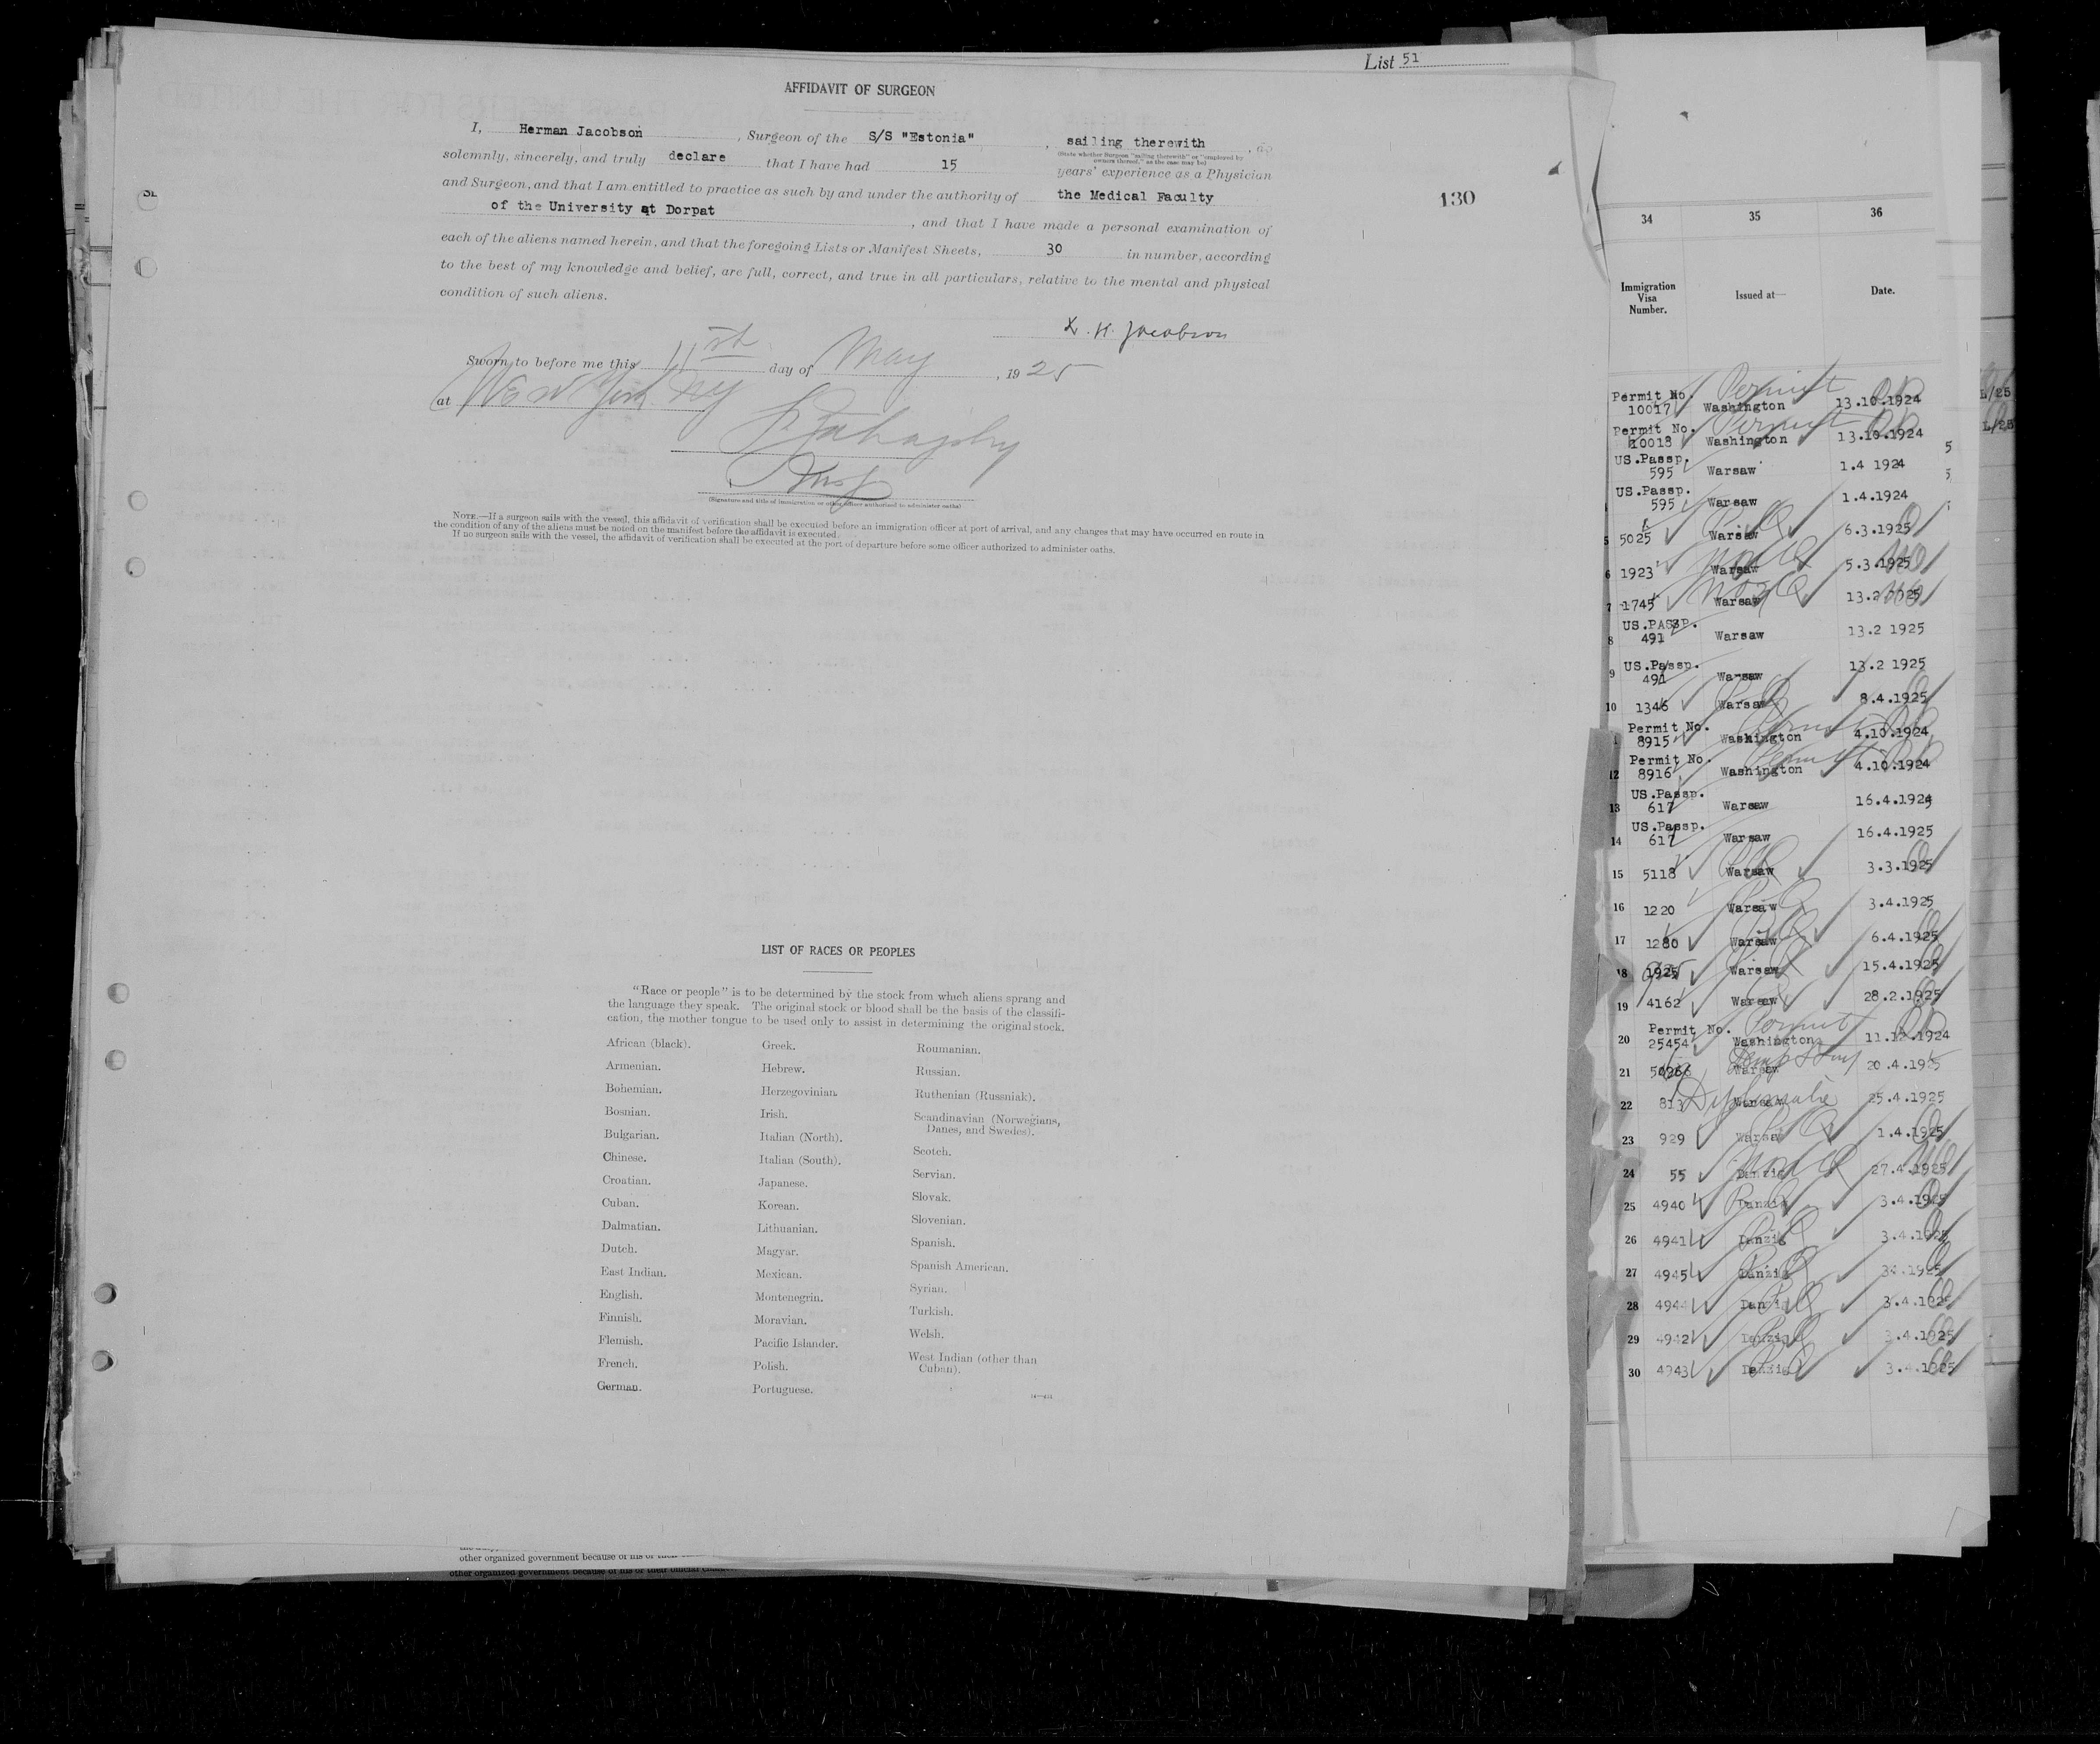 List 51
AFFIDAVIT OF SURGEON
I, Herman Jacobson , Surgeon of the S/S "Estonia" , sailing therewith , do
(State whether Surgeon "sailing therewith" or "employed by
owners thereof," as the case may be)
solemnly, sincerely, and truly declare that I have had 15 years' experience as a Physician
and Surgeon, and that I am entitled to practice as such by and under the authority of the Medical Faculty
of the University at Dorpat , and that I have made a personal examination of
each of the aliens named herein, and that the foregoing Lists or Manifest Sheets, 30 in number, according
to the best of my knowledge and belief, are full, correct, and true in all particulars, relative to the mental and physical
condition of such aliens.
H. Jacobson
Sworn to before me this 11 day of May , 1925
at New York NY
Insp
(Signature and title of immigration or other officer authorized to administer oaths)
NOTE.—If a surgeon sails with the vessel, this affidavit of verification shall be executed before an immigration officer at port of arrival, and any changes that may have occurred en route in
the condition of any of the aliens must be noted on the manifest before the affidavit is executed.
If no surgeon sails with the vessel, the affidavit of verification shall be executed at the port of departure before some officer authorized to administer oaths.
130
LIST OF RACES OR PEOPLES
"Race or people" is to be determined by the stock from which aliens sprang and
the language they speak. The original stock or blood shall be the basis of the classifi-
cation, the mother tongue to be used only to assist in determining the original stock.
African (black).
Armenian.
Bohemian.
Bosnian.
Bulgarian.
Chinese.
Croatian.
Cuban.
Dalmatian.
Dutch.
East Indian.
English.
Finnish.
Flemish.
French.
German.
Greek.
Hebrew.
Herzegovinian.
Irish.
Italian (North).
Italian (South).
Japanese.
Korean.
Lithuanian.
Magyar.
Mexican.
Montenegrin.
Moravian.
Pacific Islander.
Polish.
Portuguese.
Roumanian.
Russian.
Ruthenian (Russniak).
Scandinavian (Norwegians,
Danes, and Swedes).
Scotch.
Servian.
Slovak.
Slovenian.
Spanish.
Spanish American.
Syrian.
Turkish.
Welsh.
West Indian (other than
Cuban).
other organized government because of his or their
other organized government because of his or their official
34 35 36
Immigration
Visa
Number.
Issued at—
Date.
Permit No. Permit
10017 Washington 13.10.1924
Permit No. Permit
10018 Washington 13.10.1924
US.Passp.
595 Warsaw 1.4 1924
US.Passp.
595 Warsaw 1.4.1924
5 5025 Warsaw 6.3.1925
6 1923 Warsaw 5.3.1925
7 1745 Warsaw 13.2 1925
US.PASSP.
8 491 Warsaw 13.2 1925
US.Passp.
9 491 Warsaw 13.2 1925
10 1346 Warsaw 8.4.1925
Permit No.
8915 Washington 4.10.1924
Permit No. Permit
12 8916 Washington 4.10.1924
US.Passp.
13 617 Warsaw 16.4.1924
US.Passp.
14 617 Warsaw 16.4.1925
15 5118 Warsaw 3.3.1925
16 1220 Warsaw 3.4.1925
17 1280 Warsaw 6.4.1925
18 1925 Warsaw 15.4.1925
19 4162 Warsaw 28.2.1925
Permit No. Permit
20 25454 Washington 11.12.1924
21 Warsaw 20.4.1925
22 813 Warsaw Diplomatic 25.4.1925
23 929 Warsaw 1.4.1925
24 55 Danzig 27.4.1925
25 4940 Danzig 3.4.1925
26 4941 Danzig 3.4.1925
27 4945 Danzig 3.4.1925
28 4944 Danzig 3.4.1925
29 4942 Danzig 3.4.1925
30 4943 Danzig 3.4.1925